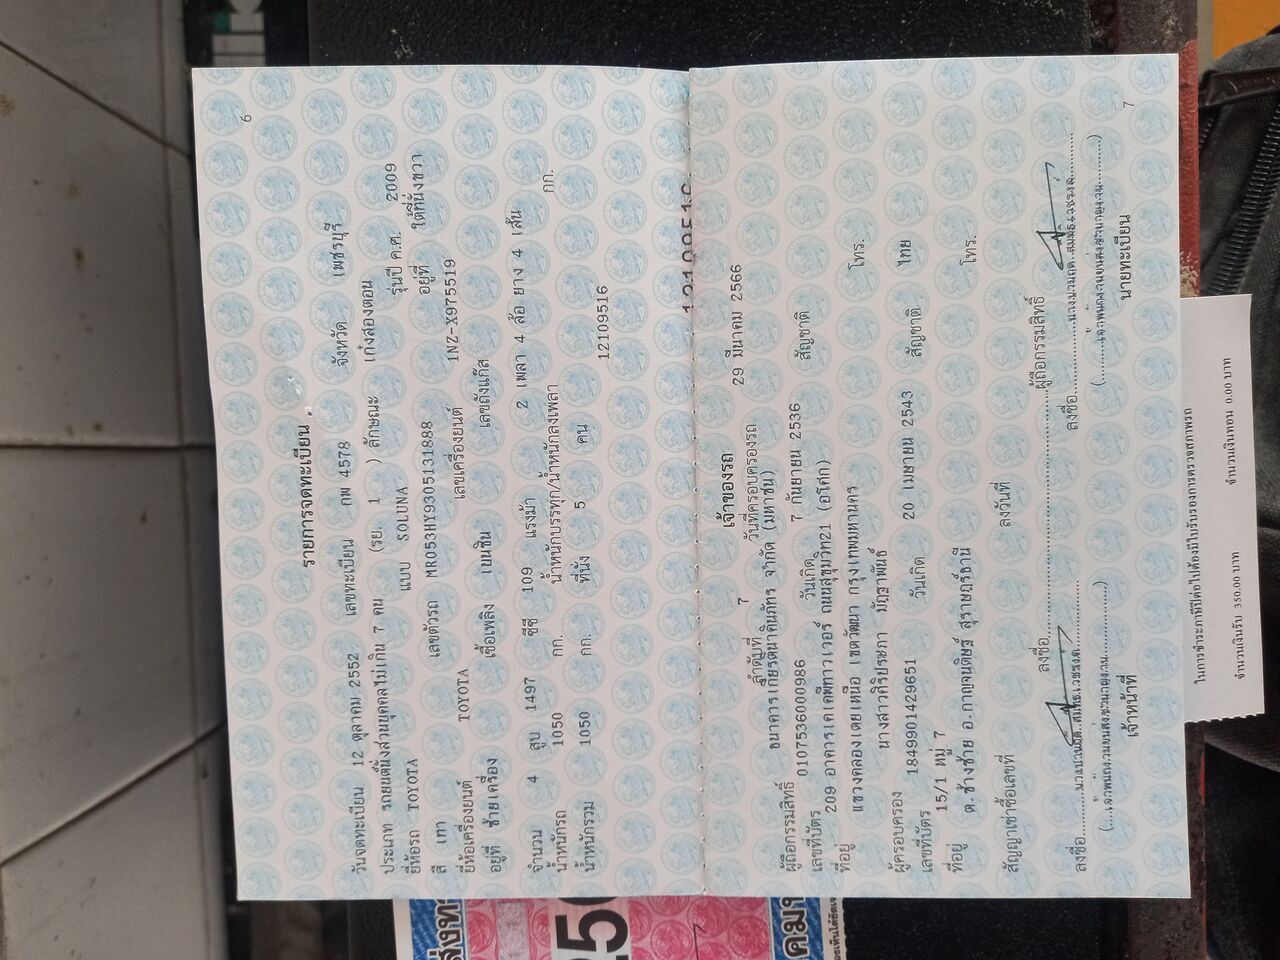 6
รายการจดทะเบียน
วันจดทะเบียน 12 ตุลาคม 2552 เลขทะเบียน กพ 4578 จังหวัด เพชรบุรี
ประเภท รถยนต์นั่งส่วนบุคคลไม่เกิน 7 คน (รย. 1 ) ลักษณะ เก๋งสองตอน
ยี่ห้อรถ TOYOTA แบบ SOLUNA รุ่นปี ค.ศ. 2009
สี เทา เลขตัวรถ MR053HY9305131888 อยู่ที่ ใต้ที่นั่งขวา
ยี่ห้อเครื่องยนต์ TOYOTA เลขเครื่องยนต์ 1NZ-X975519
อยู่ที่ ซ้ายเครื่อง เชื้อเพลิง เบนซิน เลขถังแก๊ส
จำนวน 4 สูบ 1497 ซีซี 109 แรงม้า 2 เพลา 4 ล้อ ยาง 4 เส้น
น้ำหนักรถ 1050 กก. น้ำหนักบรรทุก/น้ำหนักลงเพลา กก.
น้ำหนักรวม 1050 กก. ที่นั่ง 5 คน
12109516
เจ้าของรถ
ลำดับที่ 7 วันที่ครอบครองรถ 29 มีนาคม 2566
ผู้ถือกรรมสิทธิ์ ธนาคารเกียรตินาคินภัทร จำกัด (มหาชน)
เลขที่บัตร 0107536000986 วันเกิด 7 กันยายน 2536 สัญชาติ
ที่อยู่ 209 อาคารเคเคพีทาวเวอร์ ถนนสุขุมวิท21 (อโศก)
แขวงคลองเตยเหนือ เขตวัฒนา กรุงเทพมหานคร โทร.
ผู้ครอบครอง นางสาวศิริประภา
เลขที่บัตร 1849901429651 วันเกิด 20 เมษายน 2543 สัญชาติ ไทย
ที่อยู่ 15/1 หมู่ 7
ต.ช้างซ้าย อ.กาญจนดิษฐ์ สุราษฎร์ธานี โทร.
สัญญาเช่าซื้อเลขที่ ลงวันที่
ลงชื่อ ผู้ถือกรรมสิทธิ์
ลงชื่อ ลงชื่อ
เจ้าหน้าที่ นายทะเบียน
7
ในการชำระภาษีปีต่อไปต้องมีใบรับรองการตรวจสภาพรถ
จำนวนเงินรับ 350.00 บาท จำนวนเงินทอน 0.00 บาท